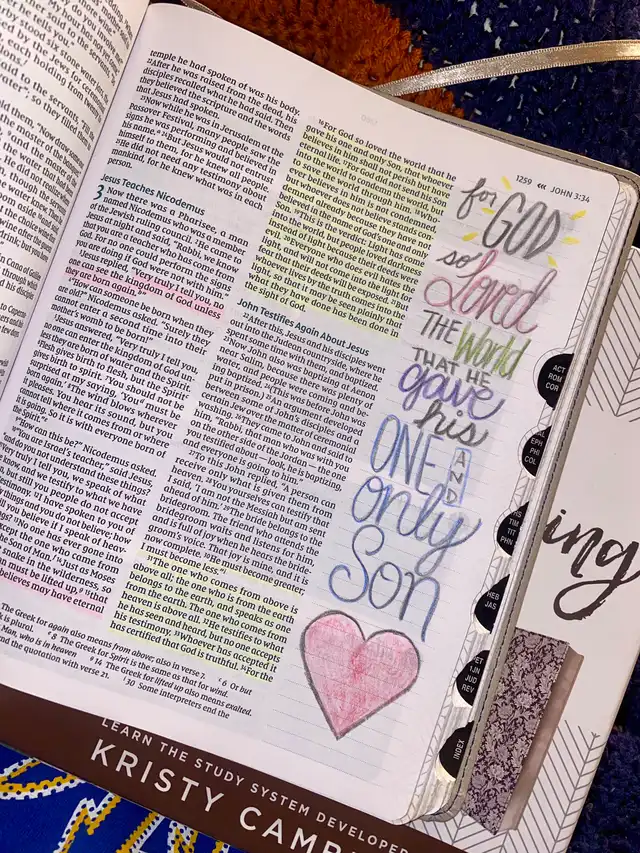 stood by
ter", so they filled them
temple he had spoken of was his body.
22After he was raised from the dead, his
disciples recalled what he had said. Then
they believed the scripture and the words
that Jesus had spoken.
23Now while he was in Jerusalem at the
Passover Festival, many people saw the
signs he was performing and believed in
his name. 24But Jesus would not entrust
himself to them, for he knew all people.
25He did not need any testimony about
mankind, for he knew what was in each
person.
Jesus Teaches Nicodemus
3 Now there was a Pharisee, a man
named Nicodemus who was a member
of the Jewish ruling council. 2He came to
Jesus at night and said, "Rabbi, we know
that you are a teacher who has come from
God. For no one could perform the signs
you are doing if God were not with him."
3Jesus replied, "Very truly I tell you, no
one can see the kingdom of God unless
they are born again."
4"How can someone be born when they
are old?" Nicodemus asked. "Surely they
cannot enter a second time into their
mother's womb to be born!"
5Jesus answered, "Very truly I tell you,
no one can enter the kingdom of God un-
less they are born of water and the Spirit.
6Flesh gives birth to flesh, but the Spirit
gives birth to spirit. 7You should not be
surprised at my saying, 'You must be
born again.' 8The wind blows wherever
it pleases. You hear its sound, but you
cannot tell where it comes from or where
it is going. So it is with everyone born of
the Spirit."
9"How can this be?" Nicodemus asked.
"You are Israel's teacher," said Jesus,
"and do you not understand these things?
Very truly I tell you, we speak of what
we know, and we testify to what we have
seen, but still you people do not accept
our testimony. 12I have spoken to you of
earthly things and you do not believe; how
will you believe if I speak of heav-
No one has ever gone into
the Son of Man. 14Just as Moses
snake in the wilderness, so
Man must be lifted up, 15that
believes may have eternal
16For God so loved the world that he
gave his one and only Son, that whoever
believes in him shall not perish but have
eternal life. 17For God did not send his Son
into the world to condemn the world, but
to save the world through him. 18Who-
ever believes in him is not condemned,
but whoever does not believe stands con-
demned already because they have not
believed in the name of God's one and only
Son. 19This is the verdict: Light has come
into the world, but people loved darkness
instead of light because their deeds were
evil. 20Everyone who does evil hates the
light, and will not come into the light for
fear that their deeds will be exposed. 21But
whoever lives by the truth comes into the
light, so that it may be seen plainly that
what they have done has been done in
the sight of God.
John Testifies Again About Jesus
22After this, Jesus and his disciples went
out into the Judean countryside, where he
spent some time with them, and baptised.
23Now John also was baptising at Aenon
near Salim, because there was plenty of
water, and people were coming and be-
ing baptised. 24(This was before John was
put in prison.) 25An argument developed
between some of John's disciples and a
certain Jew over the matter of ceremonial
washing. 26They came to John and said to
him, "Rabbi, that man who was with you
on the other side of the Jordan — the one
you testified about — look, he is baptising,
and everyone is going to him."
27To this John replied, "A person can
receive only what is given them from
heaven. 28You yourselves can testify that
I said, 'I am not the Messiah but am sent
ahead of him.' 29The bride belongs to the
bridegroom. The friend who attends the
bridegroom waits and listens for him,
and is full of joy when he hears the bride-
groom's voice. That joy is mine, and it is
now complete. 30He must become greater;
I must become less."
31The one who comes from above is
above all; the one who is from the earth
belongs to the earth, and speaks as one
from the earth. The one who comes from
heaven is above all. 32He testifies to what
he has seen and heard, but no one accepts
his testimony. 33Whoever has accepted it
has certified that God is truthful. 34For the
The Greek for again also means from above; also in verse 7.
6 Or but
is plural.
8 The Greek for Spirit is the same as that for wind.
Man, who is in heaven
14 The Greek for lifted up also means exalted.
and the quotation with verse 21.
30 Some interpreters end the
1259 JOHN 3:34
for GOD
so
Loved
THE World
THAT HE
gave
his
ONE AND
only
Son
ACT
ROM
COR
EPH
PHI
COL
TIM
TIT
PHN
HEB
JAS
PET
1JN
JUD
REV
INDEX
ing
LEARN THE STUDY SYSTEM DEVELOPED
KRISTY